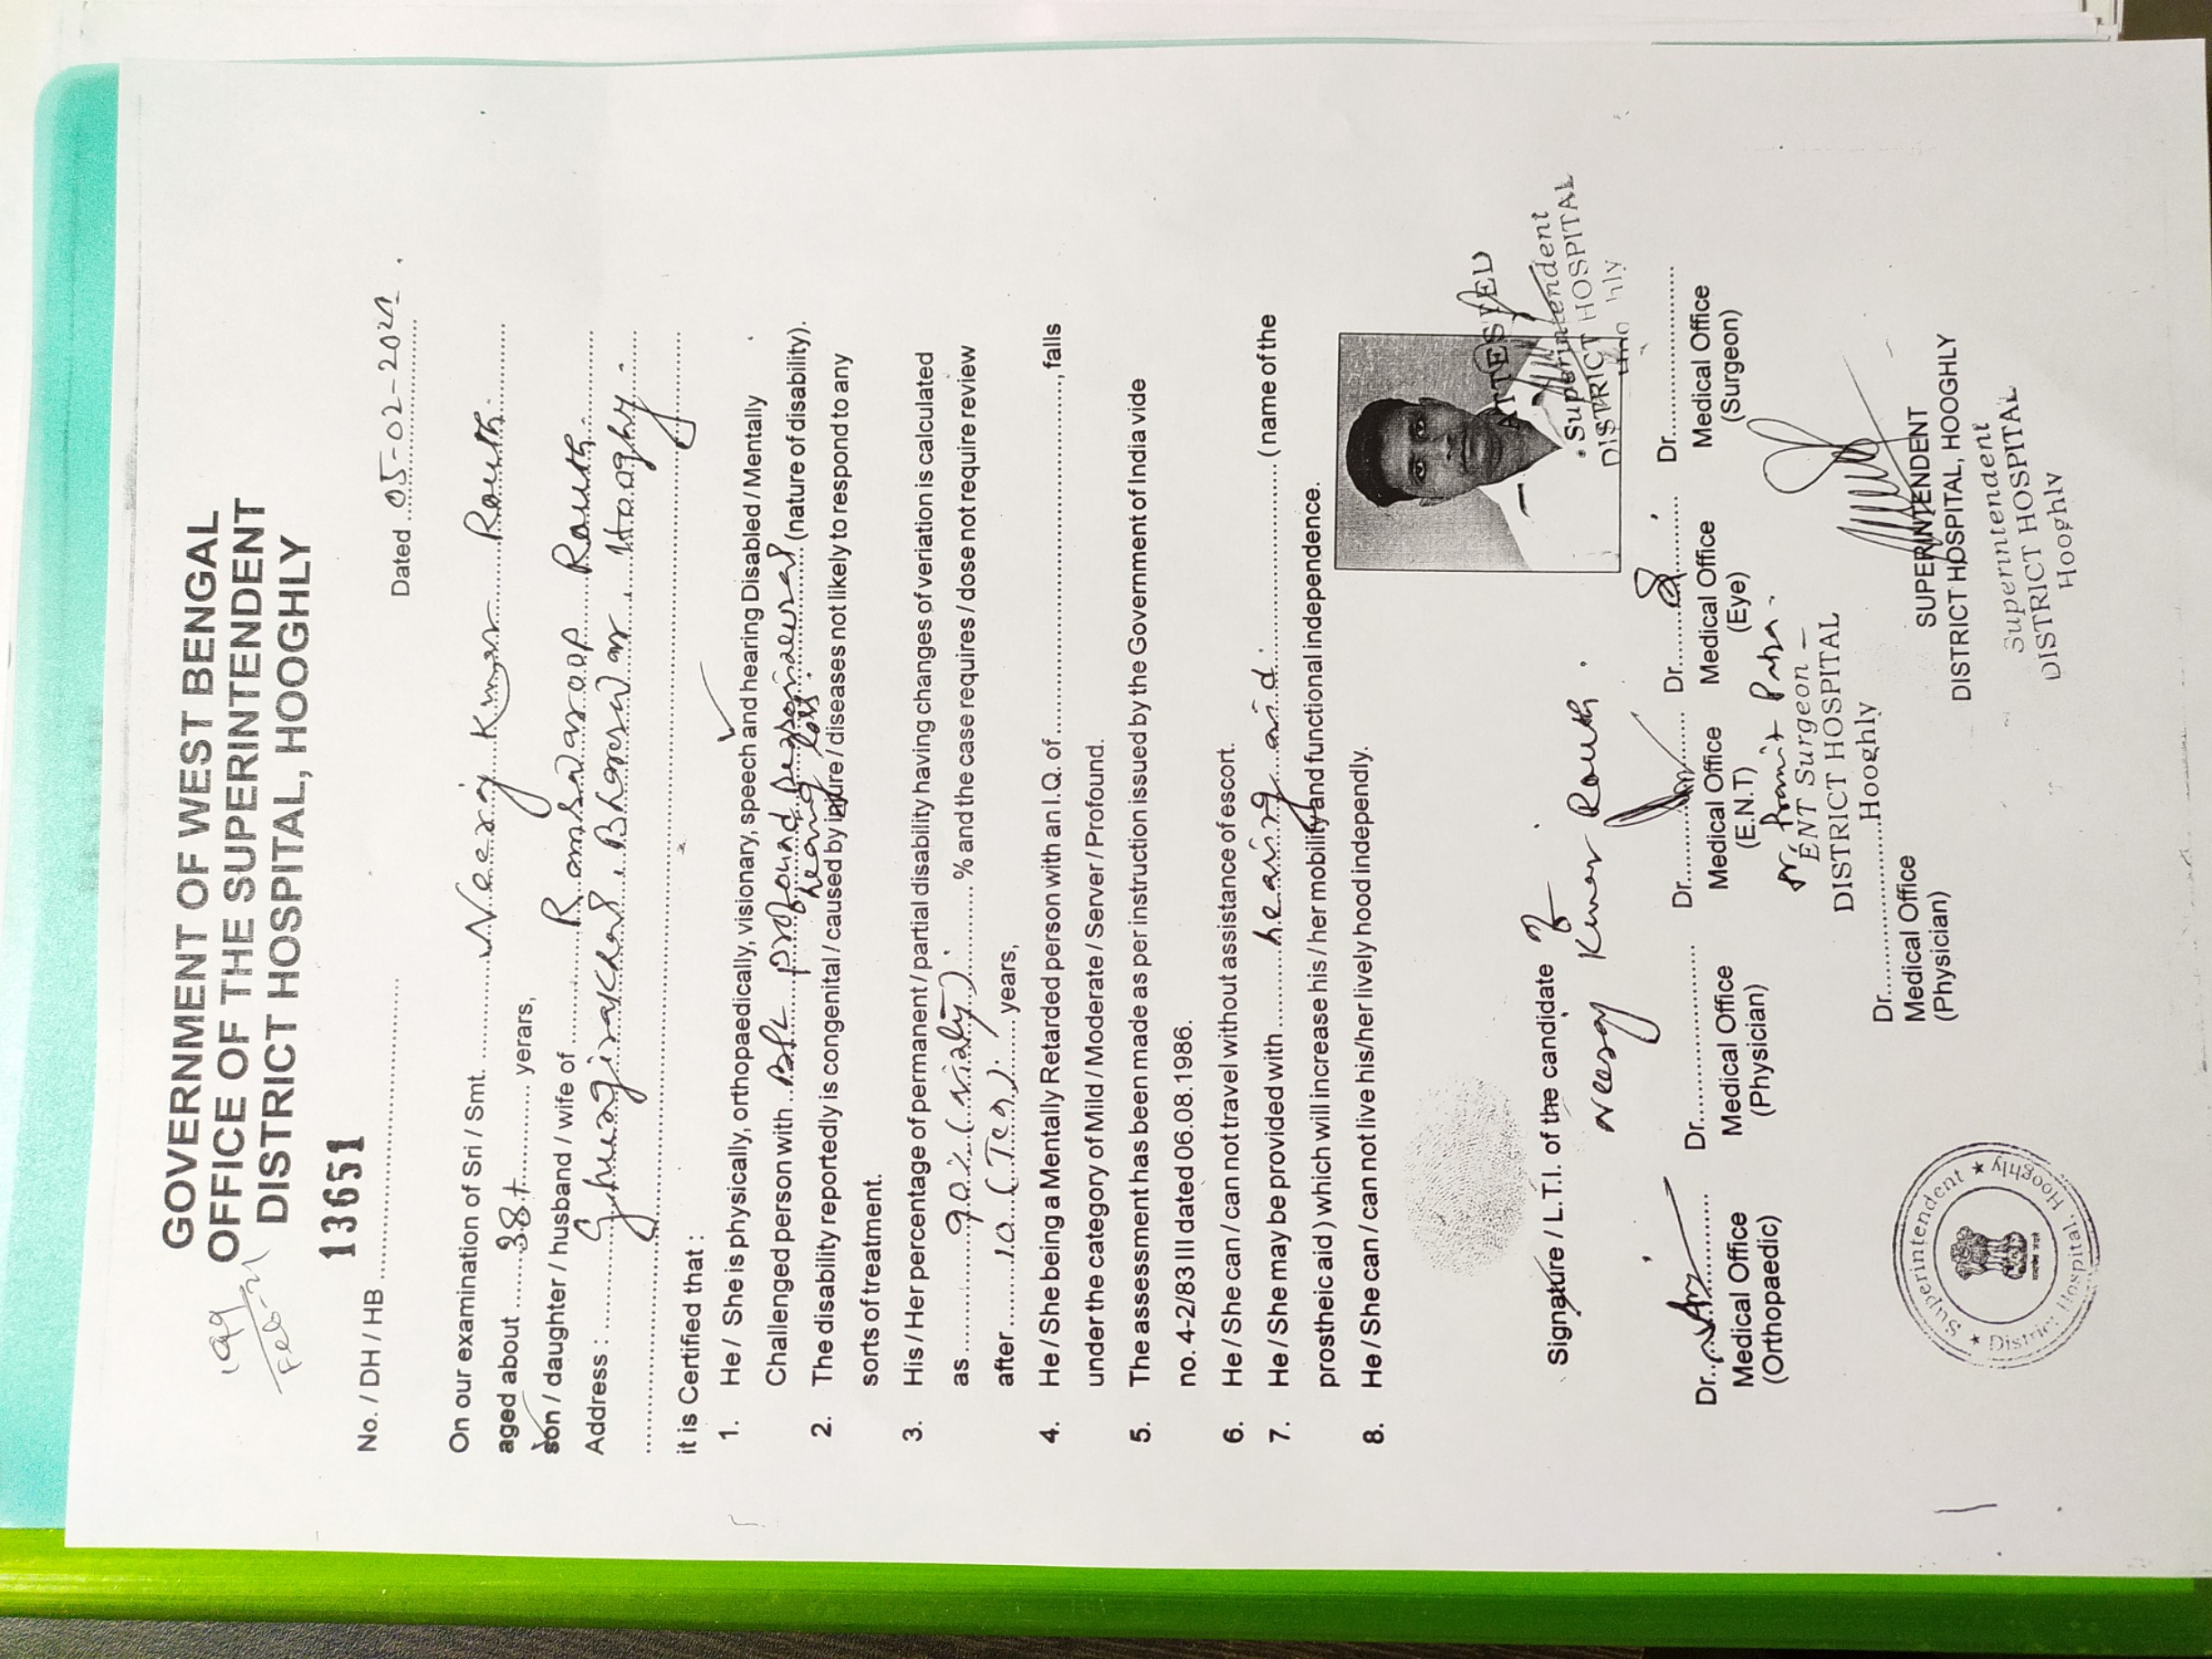 GOVERNMENT OF WEST BENGAL
OFFICE OF THE SUPERINTENDENT
DISTRICT HOSPITAL, HOOGHLY
199
Feb-21
13651
No. / DH / HB ....................
Dated 05-02-2021.
On our examination of Sri / Smt. Neeraj Kumar Routh.
aged about 38+ yerars,
son / daughter / husband / wife of Ramswaroop Routh.
Address : Bhareswar. Hooghly.
it is Certified that :
1. He / She is physically, orthopaedically, visionary, speech and hearing Disabled / Mentally
Challenged person with profound sensorineural hearing loss. (nature of disability).
2. The disability reportedly is congenital / caused by injure / diseases not likely to respond to any
sorts of treatment.
3. His / Her percentage of permanent / partial disability having changes of veriation is calculated
as 90% (ninty). % and the case requires / dose not require review
after 10 (Ten). years,
4. He / She being a Mentally Retarded person with an I.Q. of ...................., falls
under the category of Mild / Moderate / Server / Profound.
5. The assessment has been made as per instruction issued by the Government of India vide
no. 4-2/83 III dated 06.08.1986.
6. He / She can / can not travel without assistance of escort.
7. He / She may be provided with hearing aid. ( name of the
prostheic aid ) which will increase his / her mobility and functional independence.
8. He / She can / can not live his/her lively hood independently.
ATTESTED
Superintendent
DISTRICT HOSPITAL
Signature / L.T.I. of the candidate
Neeraj Kumar Routh.
Dr.
Medical Office
(Orthopaedic)
Dr.
Medical Office
(Physician)
Dr.
Medical Office
(E.N.T)
Dr.
Medical Office
(Eye)
Dr.
Medical Office
(Surgeon)
Dr.
ENT Surgeon
DISTRICT HOSPITAL
Hooghly
Dr.
Medical Office
(Physician)
SUPERINTENDENT
DISTRICT HOSPITAL, HOOGHLY
Superintendent
DISTRICT HOSPITAL
Hooghly
Superintendent ★ District Hospital, Hooghly ★